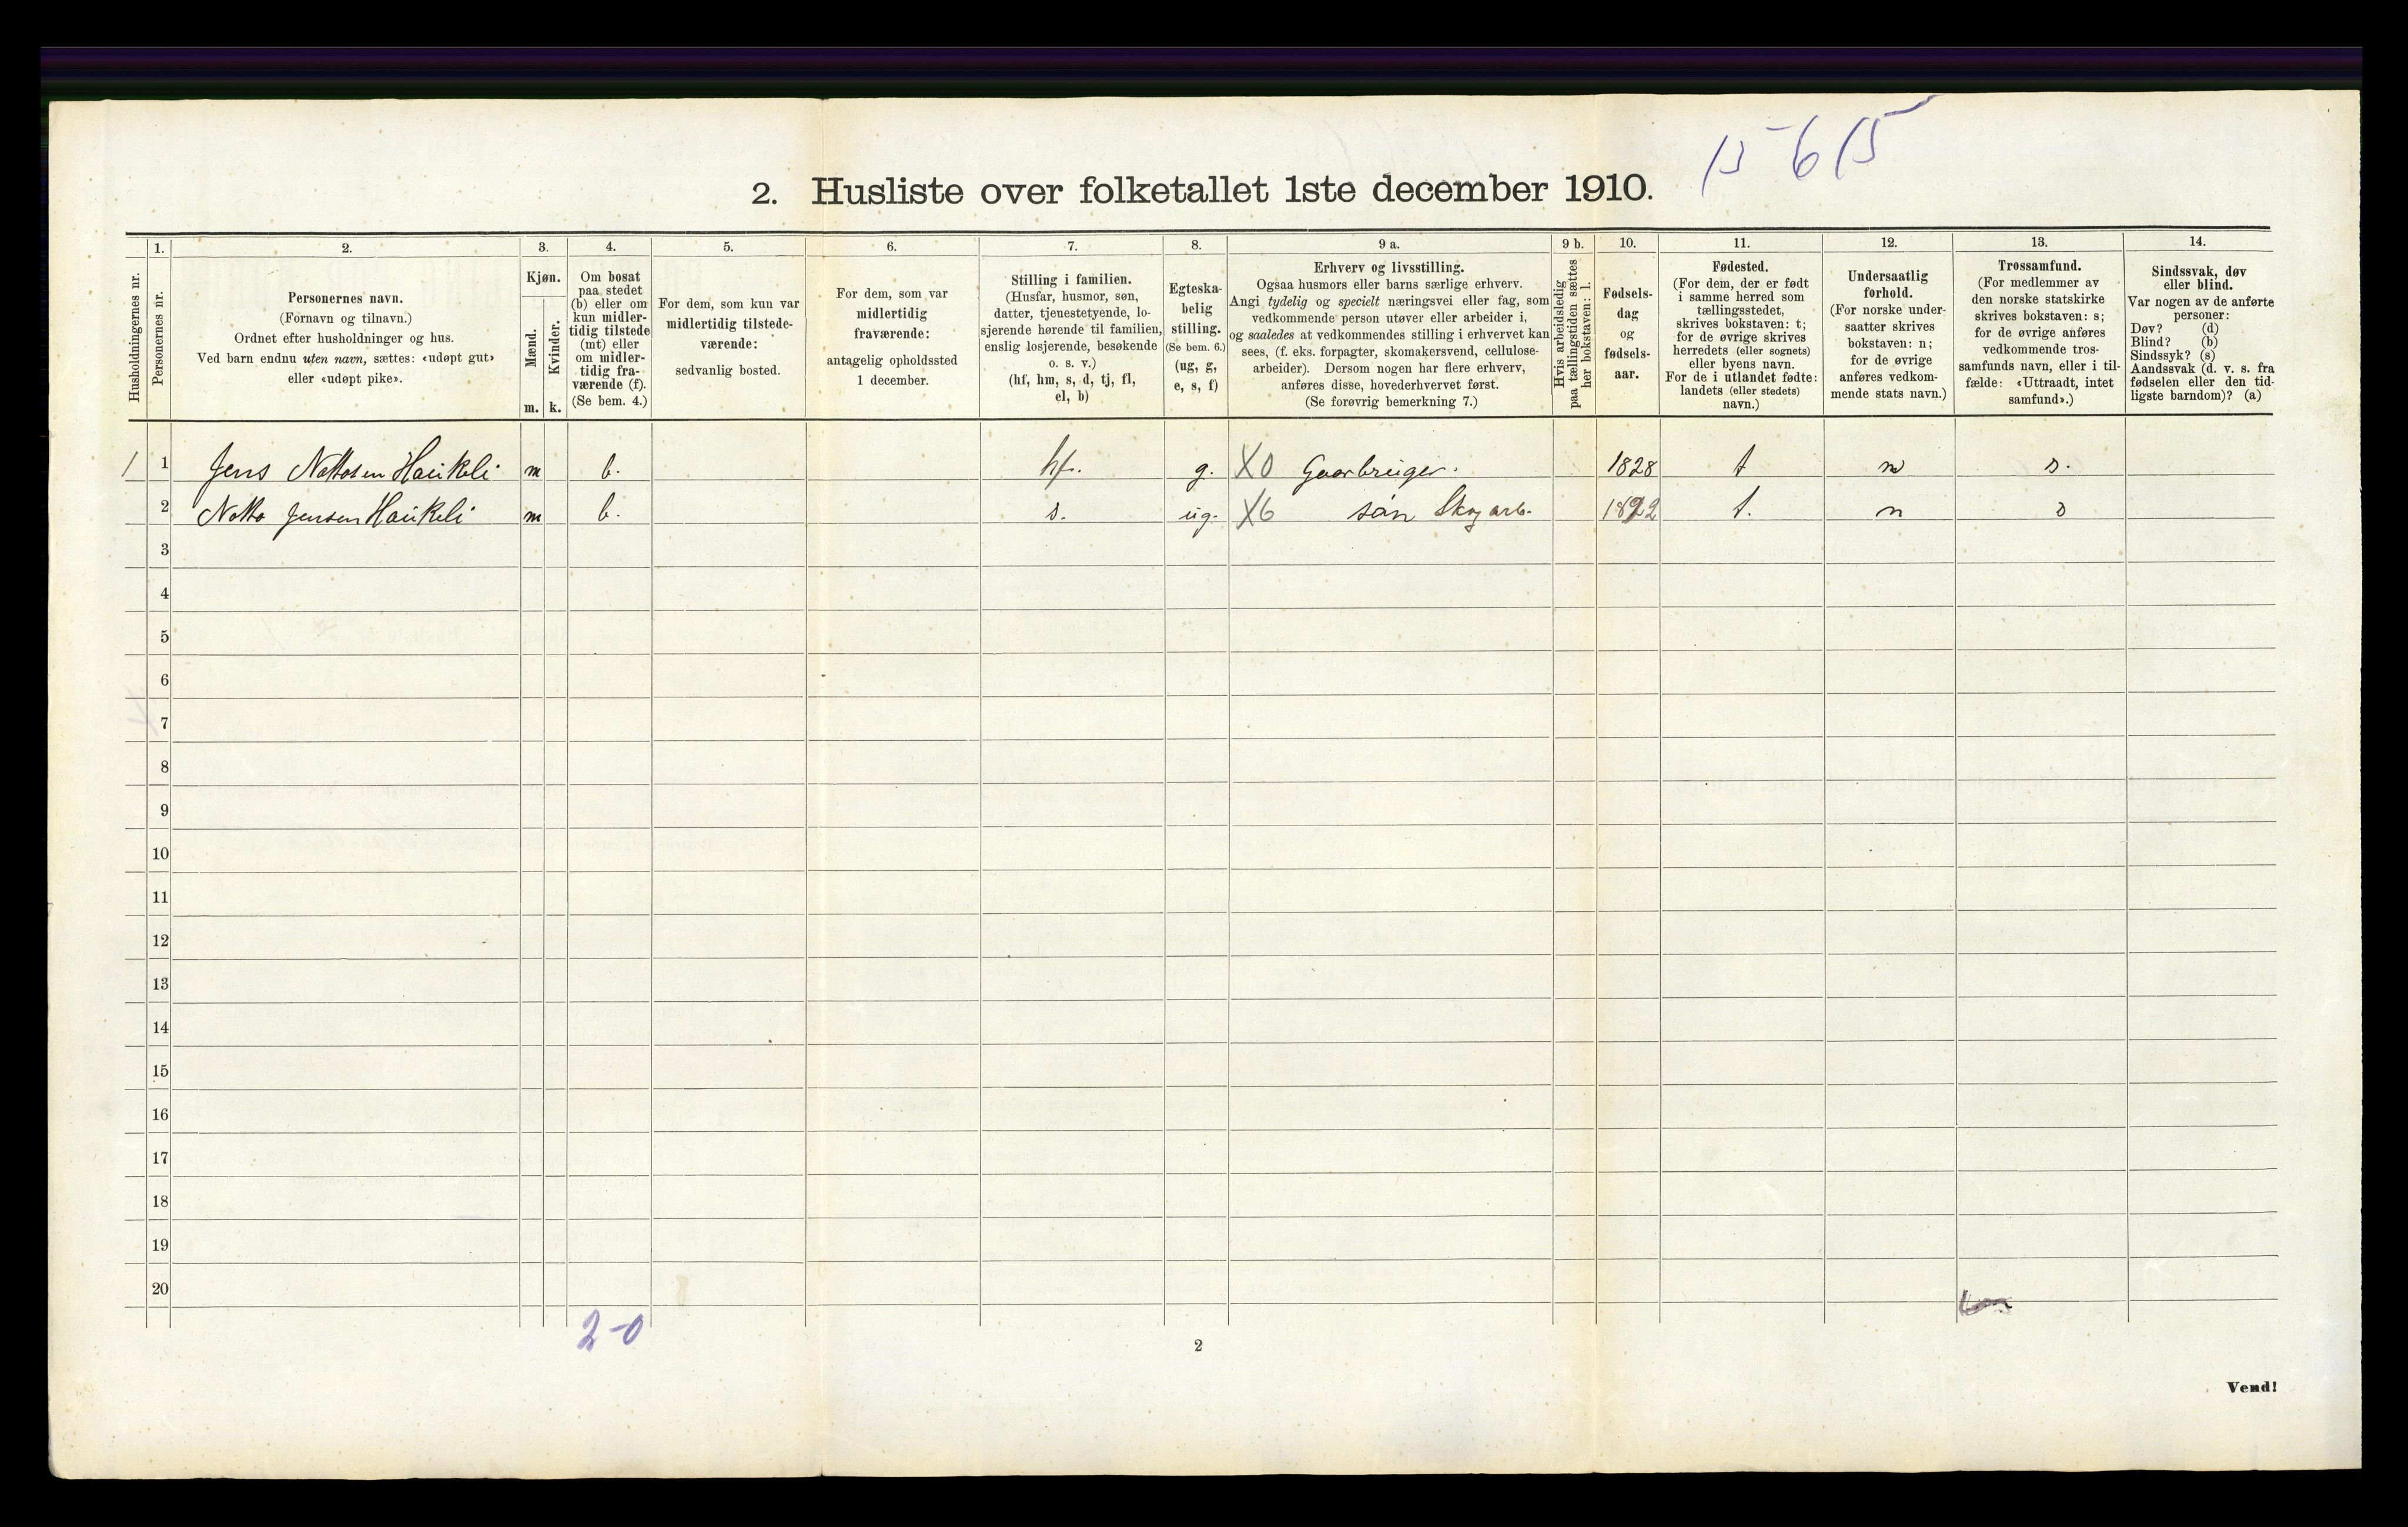 15 615
2. Husliste over folketallet 1ste december 1910.
Husholdningernes nr.
1.
Personernes nr.
2.
Personernes navn.
(Fornavn og tilnavn.)
Ordnet efter husholdninger og hus.
Ved barn endnu uten navn, sættes: «udøpt gut»
eller «udøpt pike».
3.
Kjøn.
Mænd.
Kvinder.
m. k.
4.
Om bosat
paa stedet
(b) eller om
kun midler-
tidig tilstede
(mt) eller
om midler-
tidig fra-
værende (f).
(Se bem. 4.)
5.
For dem, som kun var
midlertidig tilstede-
værende:
sedvanlig bosted.
6.
For dem, som var
midlertidig
fraværende:
antagelig opholdssted
1 december.
7.
Stilling i familien.
(Husfar, husmor, søn,
datter, tjenestetyende, lo-
sjerende hørende til familien,
enslig losjerende, besøkende
o. s. v.)
(hf, hm, s, d, tj, fl,
el, b)
8.
Egteska-
belig
stilling.
(Se bem. 6.)
(ug, g,
e, s, f)
9 a.
Erhverv og livsstilling.
Ogsaa husmors eller barns særlige erhverv.
Angi tydelig og specielt næringsvei eller fag, som
vedkommende person utøver eller arbeider i,
og saaledes at vedkommendes stilling i erhvervet kan
sees, (f. eks. forpagter, skomakersvend, cellulose-
arbeider). Dersom nogen har flere erhverv,
anføres disse, hovederhvervet først.
(Se forøvrig bemerkning 7.)
9 b.
Hvis arbeidsledig
paa tællingstiden sættes
her bokstaven: l.
10.
Fødsels-
dag
og
fødsels-
aar.
11.
Fødested.
(For dem, der er født
i samme herred som
tællingsstedet,
skrives bokstaven: t;
for de øvrige skrives
herredets (eller sognets)
eller byens navn.
For de i utlandet fødte:
landets (eller stedets)
navn.)
12.
Undersaatlig
forhold.
(For norske under-
saatter skrives
bokstaven: n;
for de øvrige
anføres vedkom-
mende stats navn.)
13.
Trossamfund.
(For medlemmer av
den norske statskirke
skrives bokstaven: s;
for de øvrige anføres
vedkommende tros-
samfunds navn, eller i til-
fælde: «Uttraadt, intet
samfund».)
14.
Sindssvak, døv
eller blind.
Var nogen av de anførte
personer:
Døv? (d)
Blind? (b)
Sindssyk? (s)
Aandssvak (d. v. s. fra
fødselen eller den tid-
ligste barndom)? (a)
1 1 Jens Nottosen Haukeli m b. hf. g. X0 Gaarbruiger. 1828 t n s.
2 Notto Jensen Haukeli m b. s. ug. X6 søn Skogarb. t. n s
3
4
5
6
7
8
9
10
11
12
13
14
15
16
17
18
19
20
2-0
2
Vend!